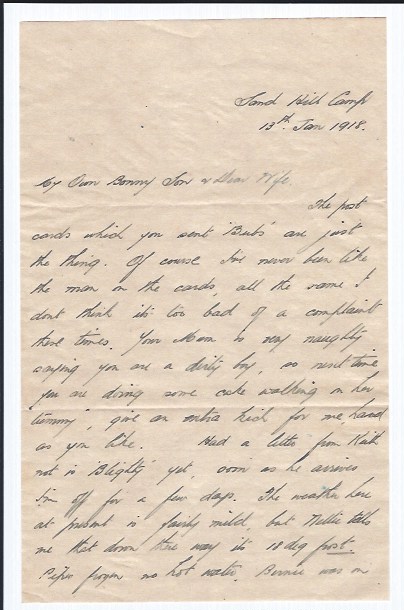 Sand Hill Camp
13th Jan 1918.
My Own Bonny Son & Dear Wife.
The post
cards which you sent 'Bubs' are just
the thing. Of course I've never been like
the man on the cards, all the same I
dont think its too bad of a complaint
these times. Your Mam is very naughty
saying you are a dirty boy, so next time
you are doing some cake walking on her
"tummy", give an extra kick for me, hard
as you like. Had a letter from Keith
not in 'Blighty' yet, soon as he arrives
I'm off for a few days. The weather here
at present is fairly mild, but Nellie tells
me that down there way its 18 deg frost.
Pipes frozen no hot water. Bernie was on